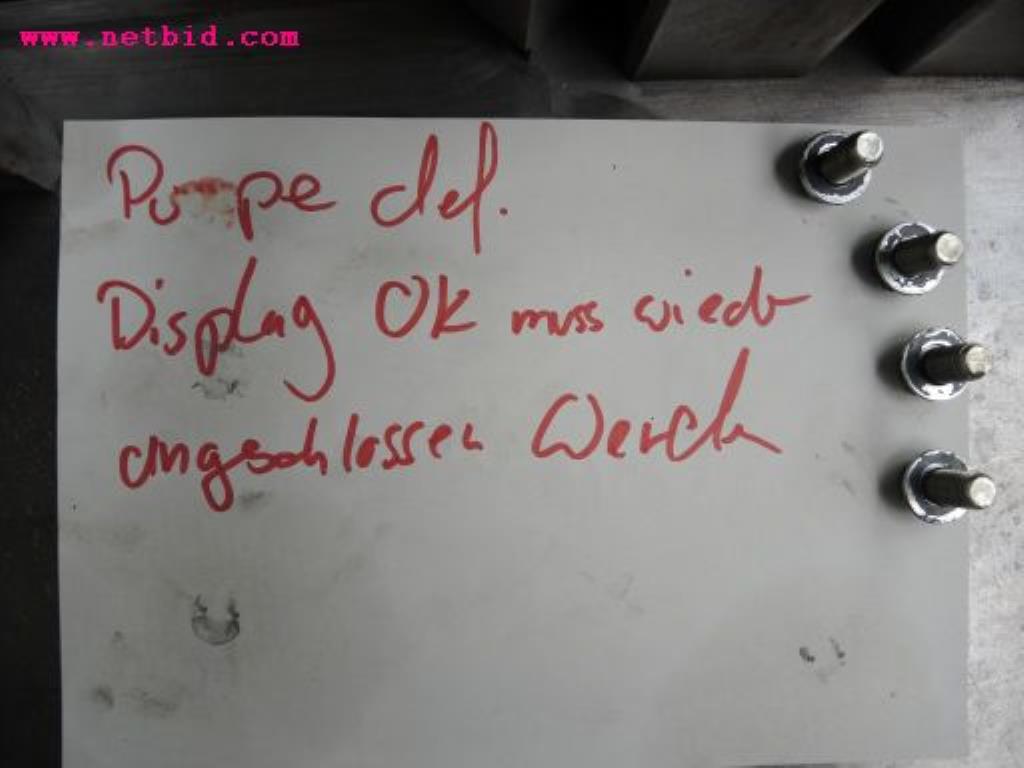 www.netbid.com
Pumpe def.
Display OK muss wieder
angeschlossen werden